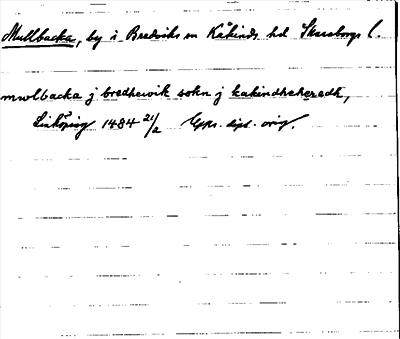 Mullbacka, by i Bredviks sn Kåkinds hd Skaraborgs l.
mwlbacka j bredhewik sokn j kakindhehæredh,
Linköping 1484 21/2 Ups. dipl. orig.